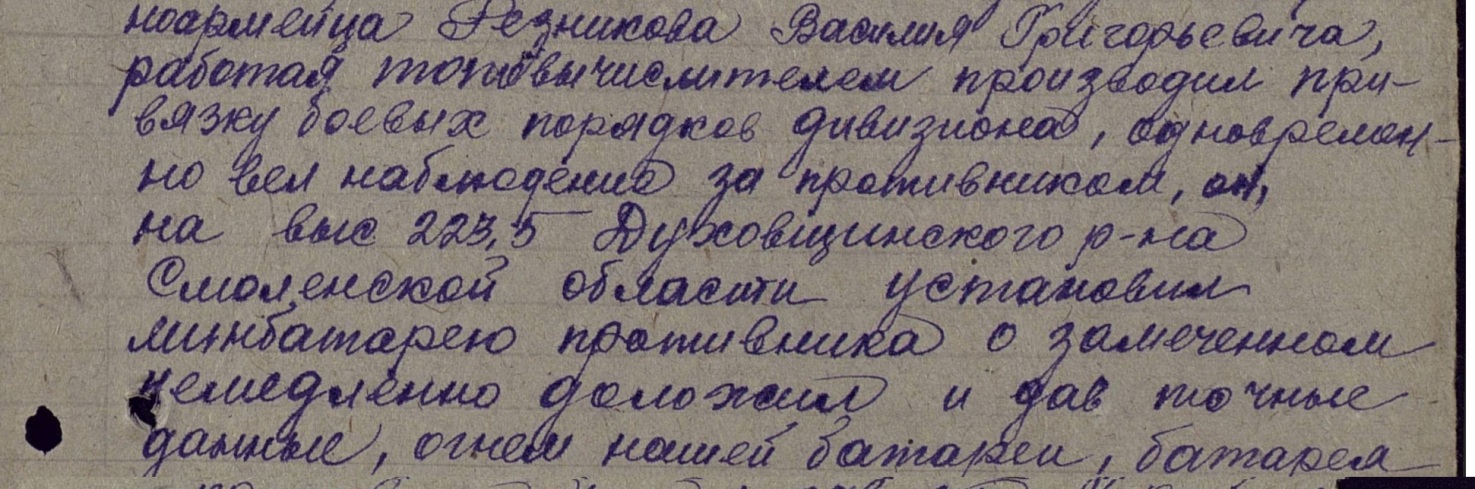 ноармейца Резникова Василия Григорьевича,
работая топовычислителем производил при-
вязку боевых порядков дивизиона, одновремен-
но вел наблюдение за противником, он,
на выс 223,5 Духовщинского р-на
Смоленской области установил
минбатарею противника о замеченном
немедленно доложил и дав точные
данные, огнем нашей батареи, батарея